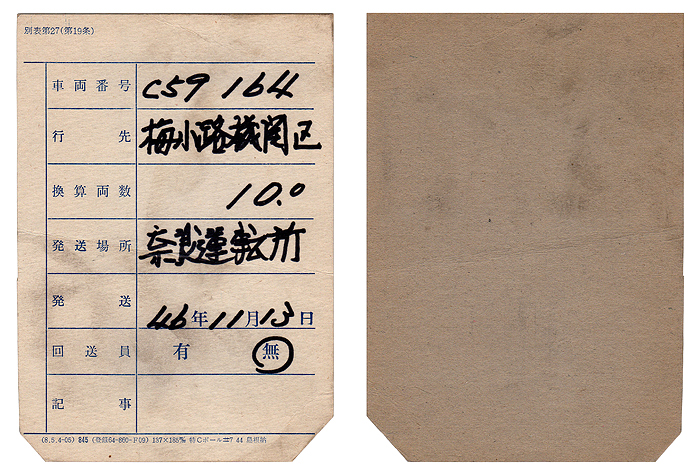 別表第27(第19条)
車両番号 C59 164
行先 梅小路機関区
換算両数 10.0
発送場所 奈良運転所
発送 46年11月13日
回送員 有 無
記事
(8.5.4-05) 845 (登録64-860-F09) 137×185% 特Cボール#7 44 島根納